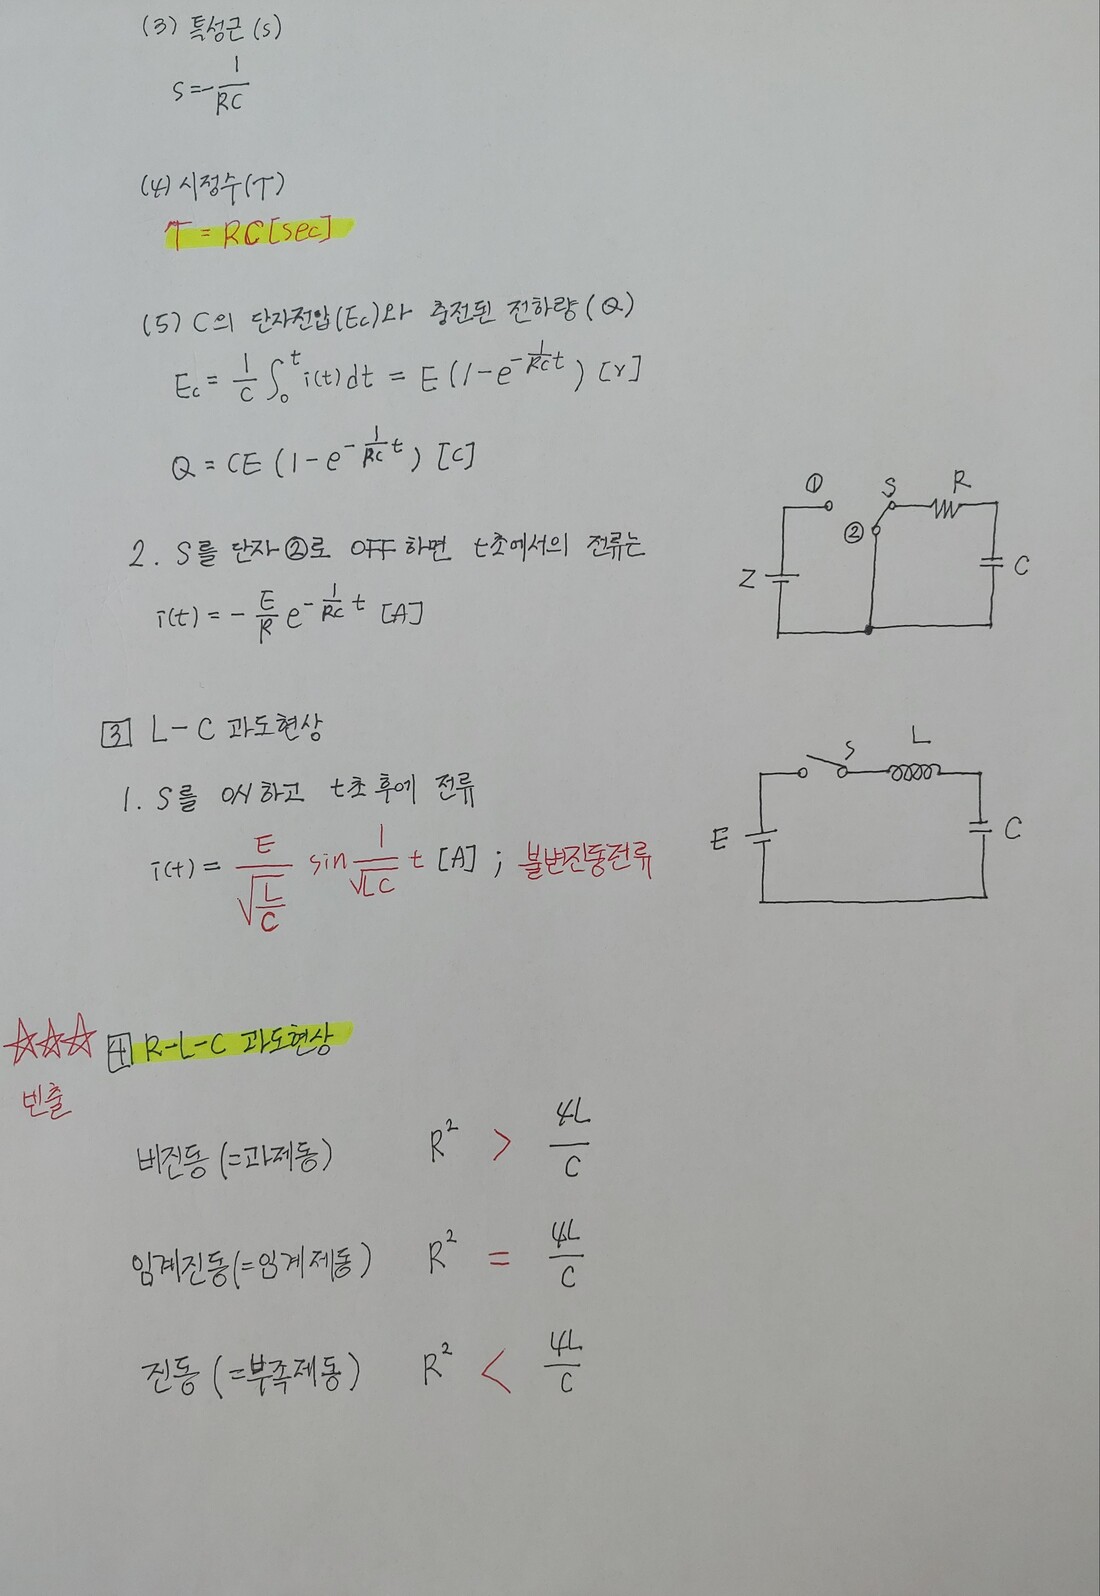 (3) 특성근 (s)
s=-1/RC
(4) 시정수(τ)
τ = RC [sec]
(5) C의 단자전압(Ec)와 충전된 전하량(Q)
Ec = 1/C ∫₀ᵗ i(t)dt = E (1-e^(-1/RC t)) [v]
Q = CE (1-e^(-1/RC t)) [C]
① S R
②
Z C
2. S를 단자 ②로 OFF 하면 t초에서의 전류는
i(t) = - E/R e^(-1/RC t) [A]
③ L-C 과도현상
S L
E C
1. S를 ON하고 t초 후에 전류
i(t) = E/√(L/C) sin 1/√LC t [A] ; 불변진동전류
☆☆☆ 4 R-L-C 과도현상
빈출
비진동 (=과제동) R² > 4L/C
임계진동(=임계제동) R² = 4L/C
진동 (=부족제동) R² < 4L/C